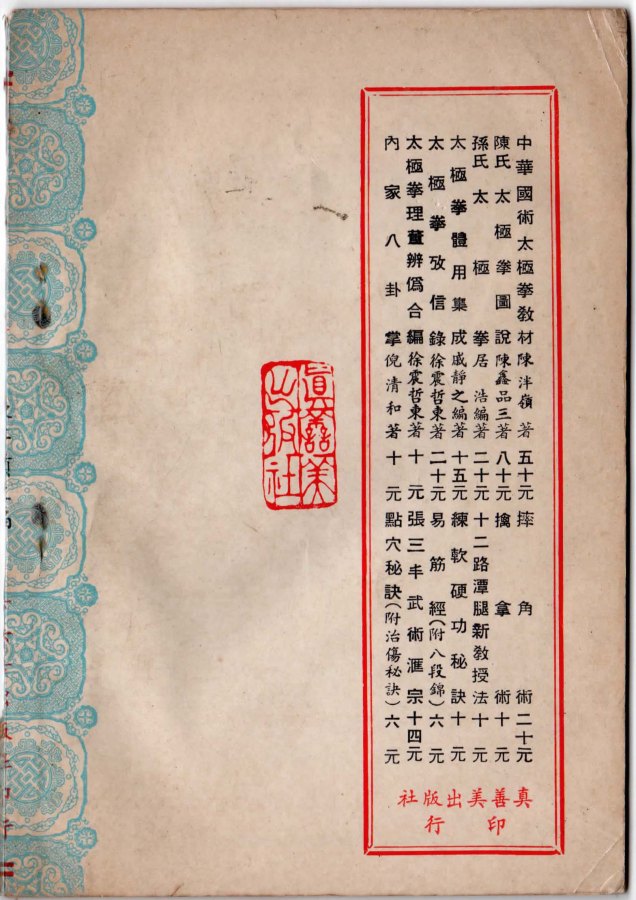 中華國術太極拳敎材 陳泮嶺著 五十元 摔角術 二十元
陳氏太極拳圖說 陳鑫品三著 八十元 擒拿術 十元
孫氏太極拳 居浩編著 二十元 十二路潭腿新敎授法 十元
太極拳體用集成 戚靜之編著 十五元 練軟硬功秘訣 十元
太極拳攷信錄 徐震哲東著 二十元 易筋經(附八段錦) 六元
太極拳理董辨僞合編 徐震哲東著 十元 張三丰武術滙宗 十四元
內家八卦掌 倪清和著 十元 點穴秘訣(附治傷秘訣) 六元
真善美出版社
印行
眞善美
出版社